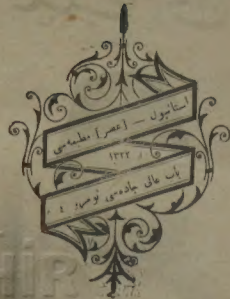 استانبول — [عصر] مطبعه‌سی
١٣٢٢
باب عالی جاده‌سی نومرو ٤